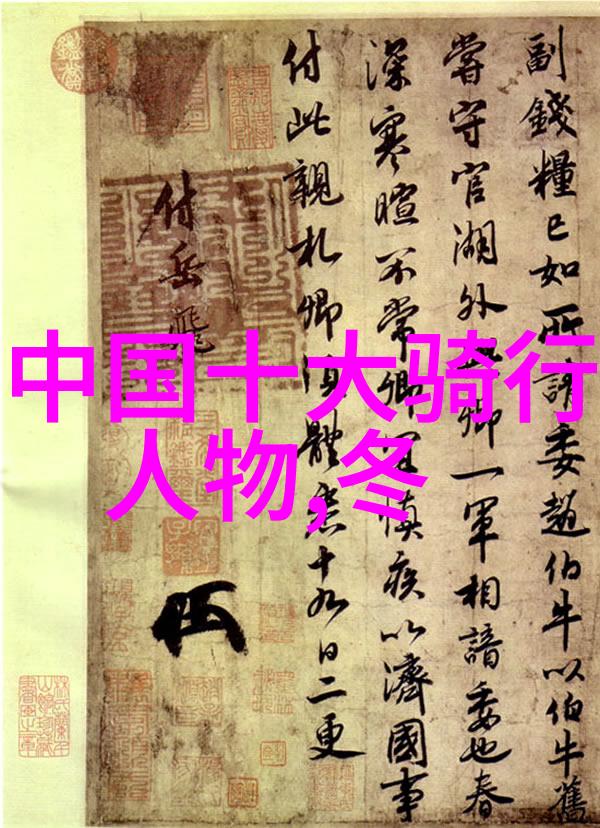 中国十大骑行
人物,冬
副錢糧已如所請委趙伯牛以伯牛舊
嘗守官湖外卿一軍相諳委也春
深寒暄不常卿宜慎疾以濟國事
付此親札卿須體悉十九日二更
付岳飛